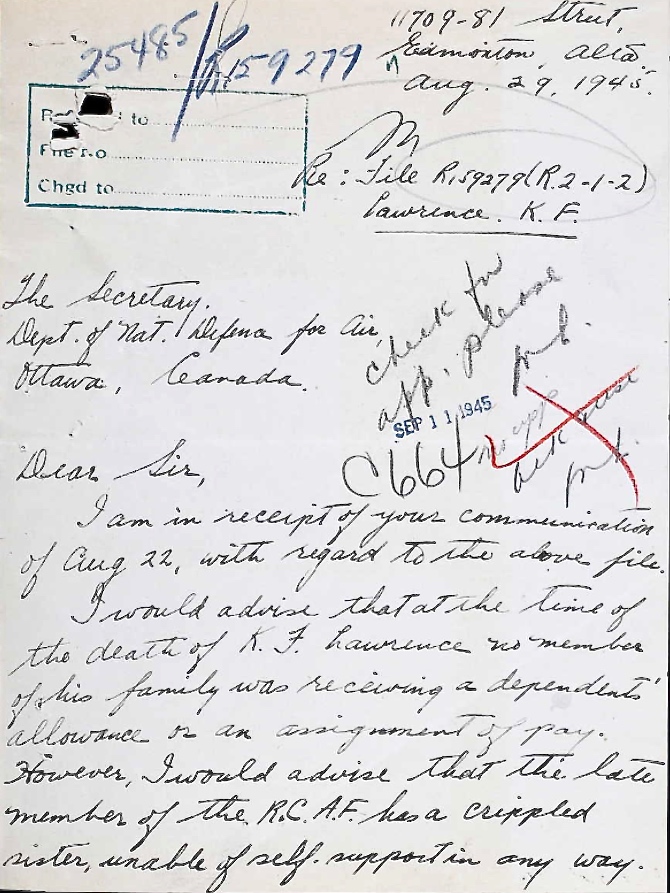 11709-81 Street,
Edmonton, Alta.
Aug. 29, 1945.
25485/R159279
to
File No
Chgd to
Re: File R159279(R.2-1-2)
Lawrence. K. F.
The Secretary.
Dept. of Nat. Defence for Air,
Ottawa, Canada.
check for
app. please
SEP 11 1945
C664
no app
Dear Sir,
I am in receipt of your communication
of Aug 22, with regard to the above file.
I would advise that at the time of
the death of K. F. Lawrence no member
of his family was receiving a dependents'
allowance or an assignment of pay.
However, I would advise that the late
member of the R.C.A.F. has a crippled
sister, unable of self-support in any way.